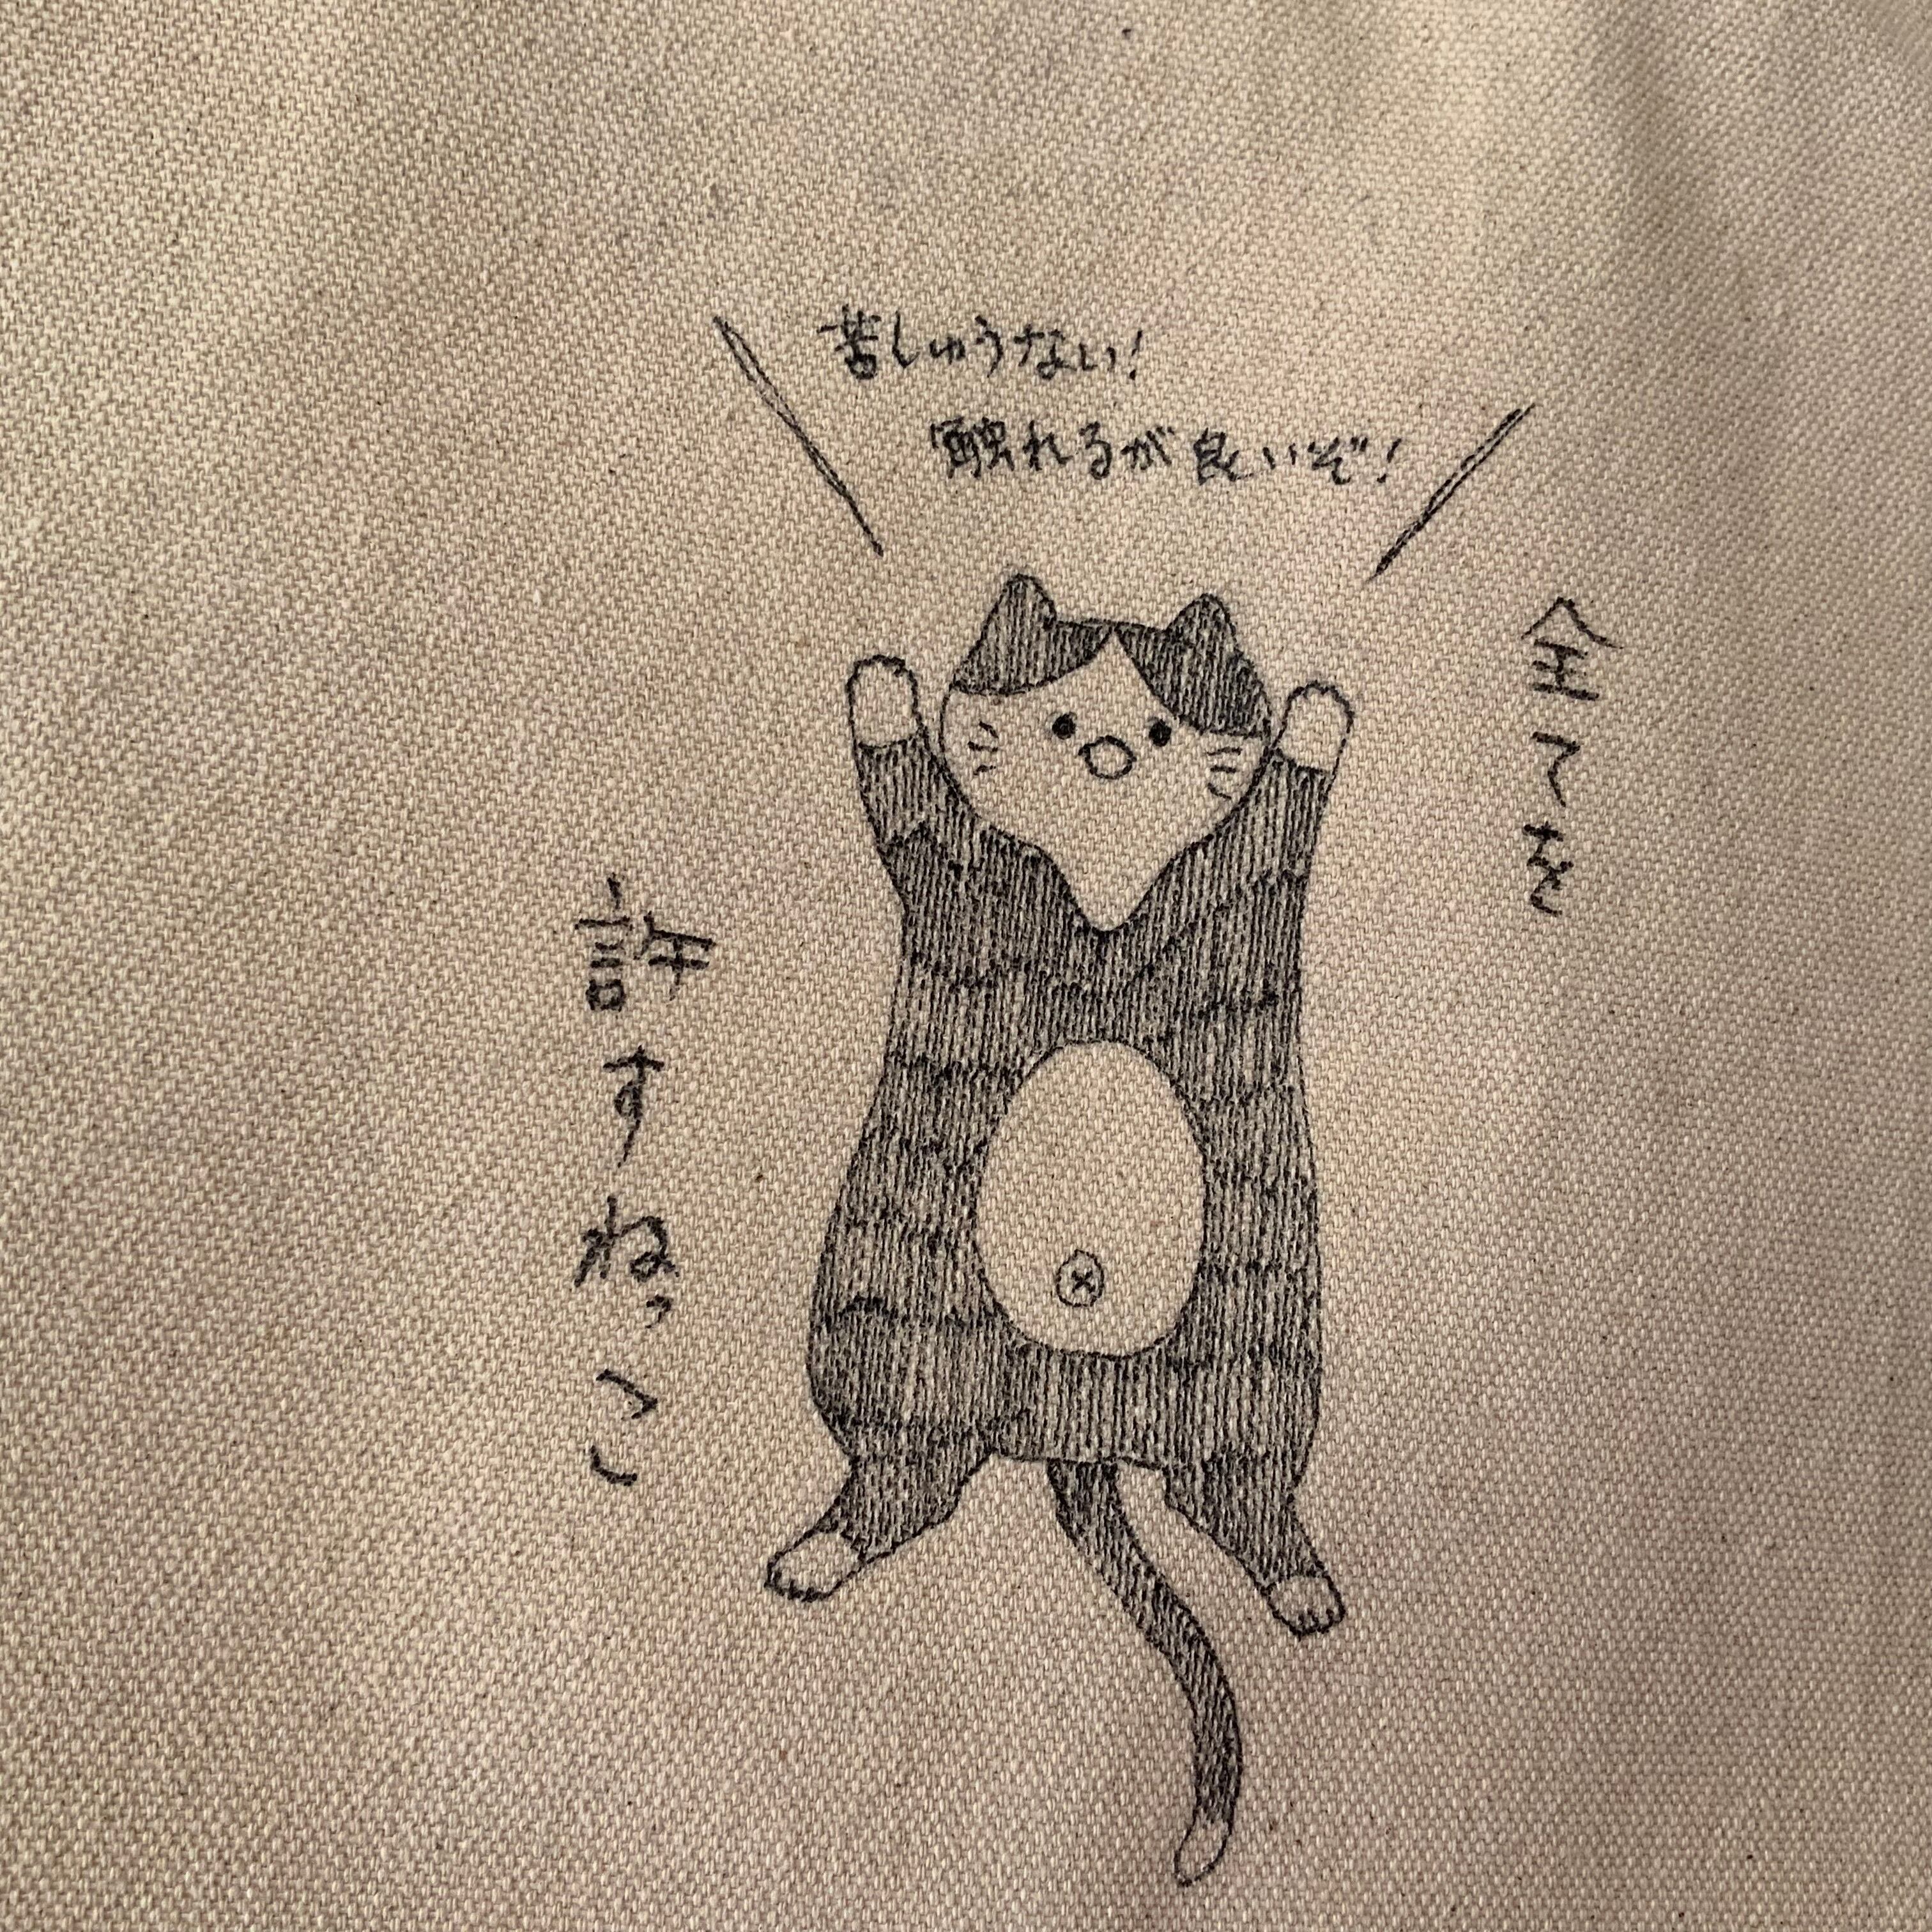 苦しゅうない!
触れるが良いぞ!
全てを
許すねっこ